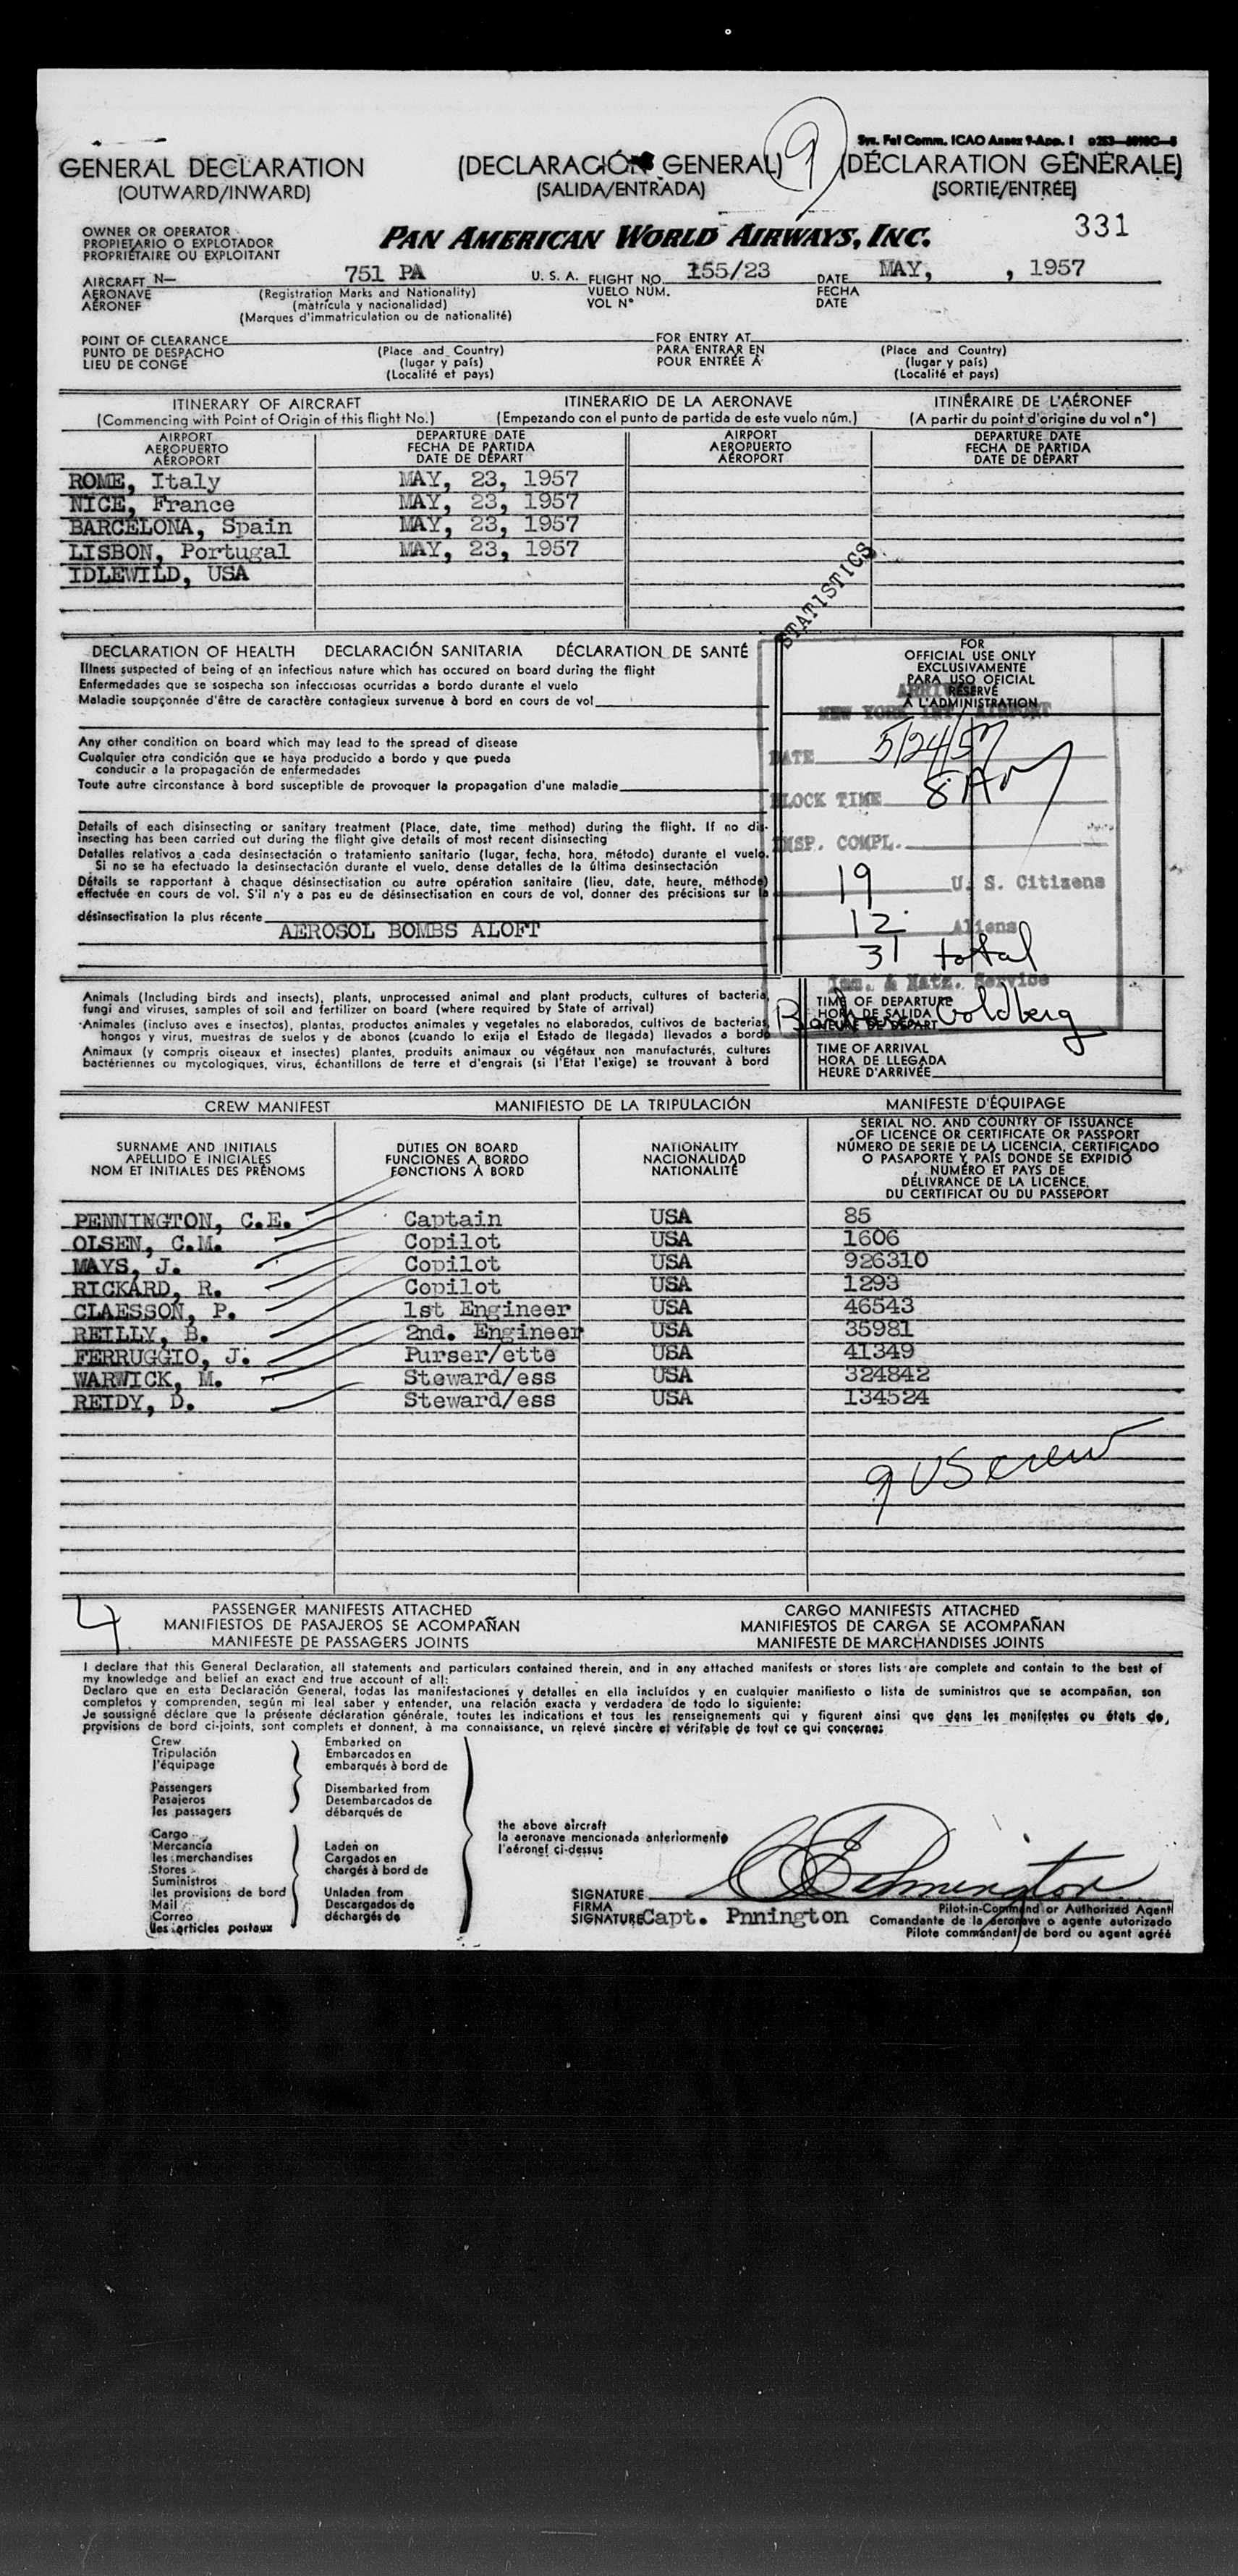 9
Sys. Fel Comm. ICAO Annex 9-App. I
GENERAL DECLARATION (DECLARACIÓN GENERAL) (DÉCLARATION GÉNÉRALE)
(OUTWARD/INWARD) (SALIDA/ENTRADA) (SORTIE/ENTRÉE)
331
OWNER OR OPERATOR
PROPIETARIO O EXPLOTADOR
PROPRIÉTAIRE OU EXPLOITANT
PAN AMERICAN WORLD AIRWAYS, INC.
AIRCRAFT N— 751 PA U. S. A. FLIGHT NO. 155/23 DATE MAY, , 1957
AERONAVE (Registration Marks and Nationality) VUELO NÚM. FECHA
AÉRONEF (matrícula y nacionalidad) VOL N° DATE
(Marques d'immatriculation ou de nationalité)
POINT OF CLEARANCE FOR ENTRY AT
PUNTO DE DESPACHO (Place and Country) PARA ENTRAR EN (Place and Country)
LIEU DE CONGÉ (lugar y país) POUR ENTRÉE À (lugar y país)
(Localité et pays) (Localité et pays)
ITINERARY OF AIRCRAFT ITINERARIO DE LA AERONAVE ITINÉRAIRE DE L'AÉRONEF
(Commencing with Point of Origin of this flight No.) (Empezando con el punto de partida de este vuelo núm.) (A partir du point d'origine du vol n°)
AIRPORT DEPARTURE DATE AIRPORT DEPARTURE DATE
AEROPUERTO FECHA DE PARTIDA AEROPUERTO FECHA DE PARTIDA
AÉROPORT DATE DE DÉPART AÉROPORT DATE DE DÉPART
ROME, Italy MAY, 23, 1957
NICE, France MAY, 23, 1957
BARCELONA, Spain MAY, 23, 1957
LISBON, Portugal MAY, 23, 1957
IDLEWILD, USA
STATISTICS
DECLARATION OF HEALTH DECLARACIÓN SANITARIA DÉCLARATION DE SANTÉ
Illness suspected of being of an infectious nature which has occured on board during the flight
Enfermedades que se sospecha son infecciosas ocurridas a bordo durante el vuelo
Maladie soupçonnée d'être de caractère contagieux survenue à bord en cours de vol
Any other condition on board which may lead to the spread of disease
Cualquier otra condición que se haya producido a bordo y que pueda
conducir a la propagación de enfermedades
Toute autre circonstance à bord susceptible de provoquer la propagation d'une maladie
Details of each disinsecting or sanitary treatment (Place, date, time method) during the flight. If no dis-
insecting has been carried out during the flight give details of most recent disinsecting
Detalles relativos a cada desinsectación o tratamiento sanitario (lugar, fecha, hora, método) durante el vuelo.
Si no se ha efectuado la desinsectación durante el vuelo, dense detalles de la última desinsectación
Détails se rapportant à chaque désinsectisation ou autre opération sanitaire (lieu, date, heure, méthode)
effectuée en cours de vol. S'il n'y a pas eu de désinsectisation en cours de vol, donner des précisions sur la
désinsectisation la plus récente
AEROSOL BOMBS ALOFT
FOR
OFFICIAL USE ONLY
EXCLUSIVAMENTE
PARA USO OFICIAL
RÉSERVÉ
À L'ADMINISTRATION
NEW YORK INT. AIRPORT
DATE 5/24/57
BLOCK TIME 8 AM
INSP. COMPL.
19 U. S. Citizens
12 Aliens
31 total
Imm. & Natz. Service
Goldberg
Animals (Including birds and insects), plants, unprocessed animal and plant products, cultures of bacteria,
fungi and viruses, samples of soil and fertilizer on board (where required by State of arrival)
Animales (incluso aves e insectos), plantas, productos animales y vegetales no elaborados, cultivos de bacterias,
hongos y virus, muestras de suelos y de abonos (cuando lo exija el Estado de llegada) llevados a bordo
Animaux (y compris oiseaux et insectes) plantes, produits animaux ou végétaux non manufacturés, cultures
bactériennes ou mycologiques, virus, échantillons de terre et d'engrais (si l'État l'exige) se trouvant à bord
TIME OF DEPARTURE
HORA DE SALIDA
HEURE DE DÉPART
TIME OF ARRIVAL
HORA DE LLEGADA
HEURE D'ARRIVÉE
CREW MANIFEST MANIFIESTO DE LA TRIPULACIÓN MANIFESTE D'ÉQUIPAGE
SURNAME AND INITIALS
APELLIDO E INICIALES
NOM ET INITIALES DES PRÉNOMS
DUTIES ON BOARD
FUNCIONES A BORDO
FONCTIONS À BORD
NATIONALITY
NACIONALIDAD
NATIONALITÉ
SERIAL NO. AND COUNTRY OF ISSUANCE
OF LICENCE OR CERTIFICATE OR PASSPORT
NÚMERO DE SERIE DE LA LICENCIA, CERTIFICADO
O PASAPORTE Y PAÍS DONDE SE EXPIDIÓ
NUMÉRO ET PAYS DE
DÉLIVRANCE DE LA LICENCE,
DU CERTIFICAT OU DU PASSEPORT
PENNINGTON, C.E. Captain USA 85
OLSEN, C.M. Copilot USA 1606
MAYS, J. Copilot USA 926310
RICKARD, R. Copilot USA 1293
CLAESSON, P. 1st Engineer USA 46543
REILLY, B. 2nd. Engineer USA 35981
FERRUGGIO, J. Purser/ette USA 41349
WARWICK, M. Steward/ess USA 324842
REIDY, D. Steward/ess USA 134524
9 US crew
4
PASSENGER MANIFESTS ATTACHED CARGO MANIFESTS ATTACHED
MANIFIESTOS DE PASAJEROS SE ACOMPAÑAN MANIFIESTOS DE CARGA SE ACOMPAÑAN
MANIFESTE DE PASSAGERS JOINTS MANIFESTE DE MARCHANDISES JOINTS
I declare that this General Declaration, all statements and particulars contained therein, and in any attached manifests or stores lists are complete and contain to the best of
my knowledge and belief an exact and true account of all:
Declaro que en esta Declaración General, todas las manifestaciones y detalles en ella incluídos y en cualquier manifiesto o lista de suministros que se acompañan, son
completos y comprenden, según mi leal saber y entender, una relación exacta y verdadera de todo lo siguiente:
Je soussigné déclare que la présente déclaration générale, toutes les indications et tous les renseignements qui y figurent ainsi que dans les manifestes ou états de,
provisions de bord ci-joints, sont complets et donnent, à ma connaissance, un relevé sincère et véritable de tout ce qui concerne:
Crew
Tripulación
l'équipage
Passengers
Pasajeros
les passagers
Embarked on
Embarcados en
embarqués à bord de
Disembarked from
Desembarcados de
débarqués de
Cargo
Mercancía
les merchandises
Stores
Suministros
les provisions de bord
Mail
Correo
les articles postaux
Laden on
Cargados en
chargés à bord de
Unladen from
Descargados de
déchargés de
the above aircraft
la aeronave mencionada anteriormente
l'aéronef ci-dessus
SIGNATURE CEPennington
FIRMA
SIGNATURE Capt. Pnnington
Pilot-in-Command or Authorized Agent
Comandante de la aeronave o agente autorizado
Pilote commandant de bord ou agent agréé